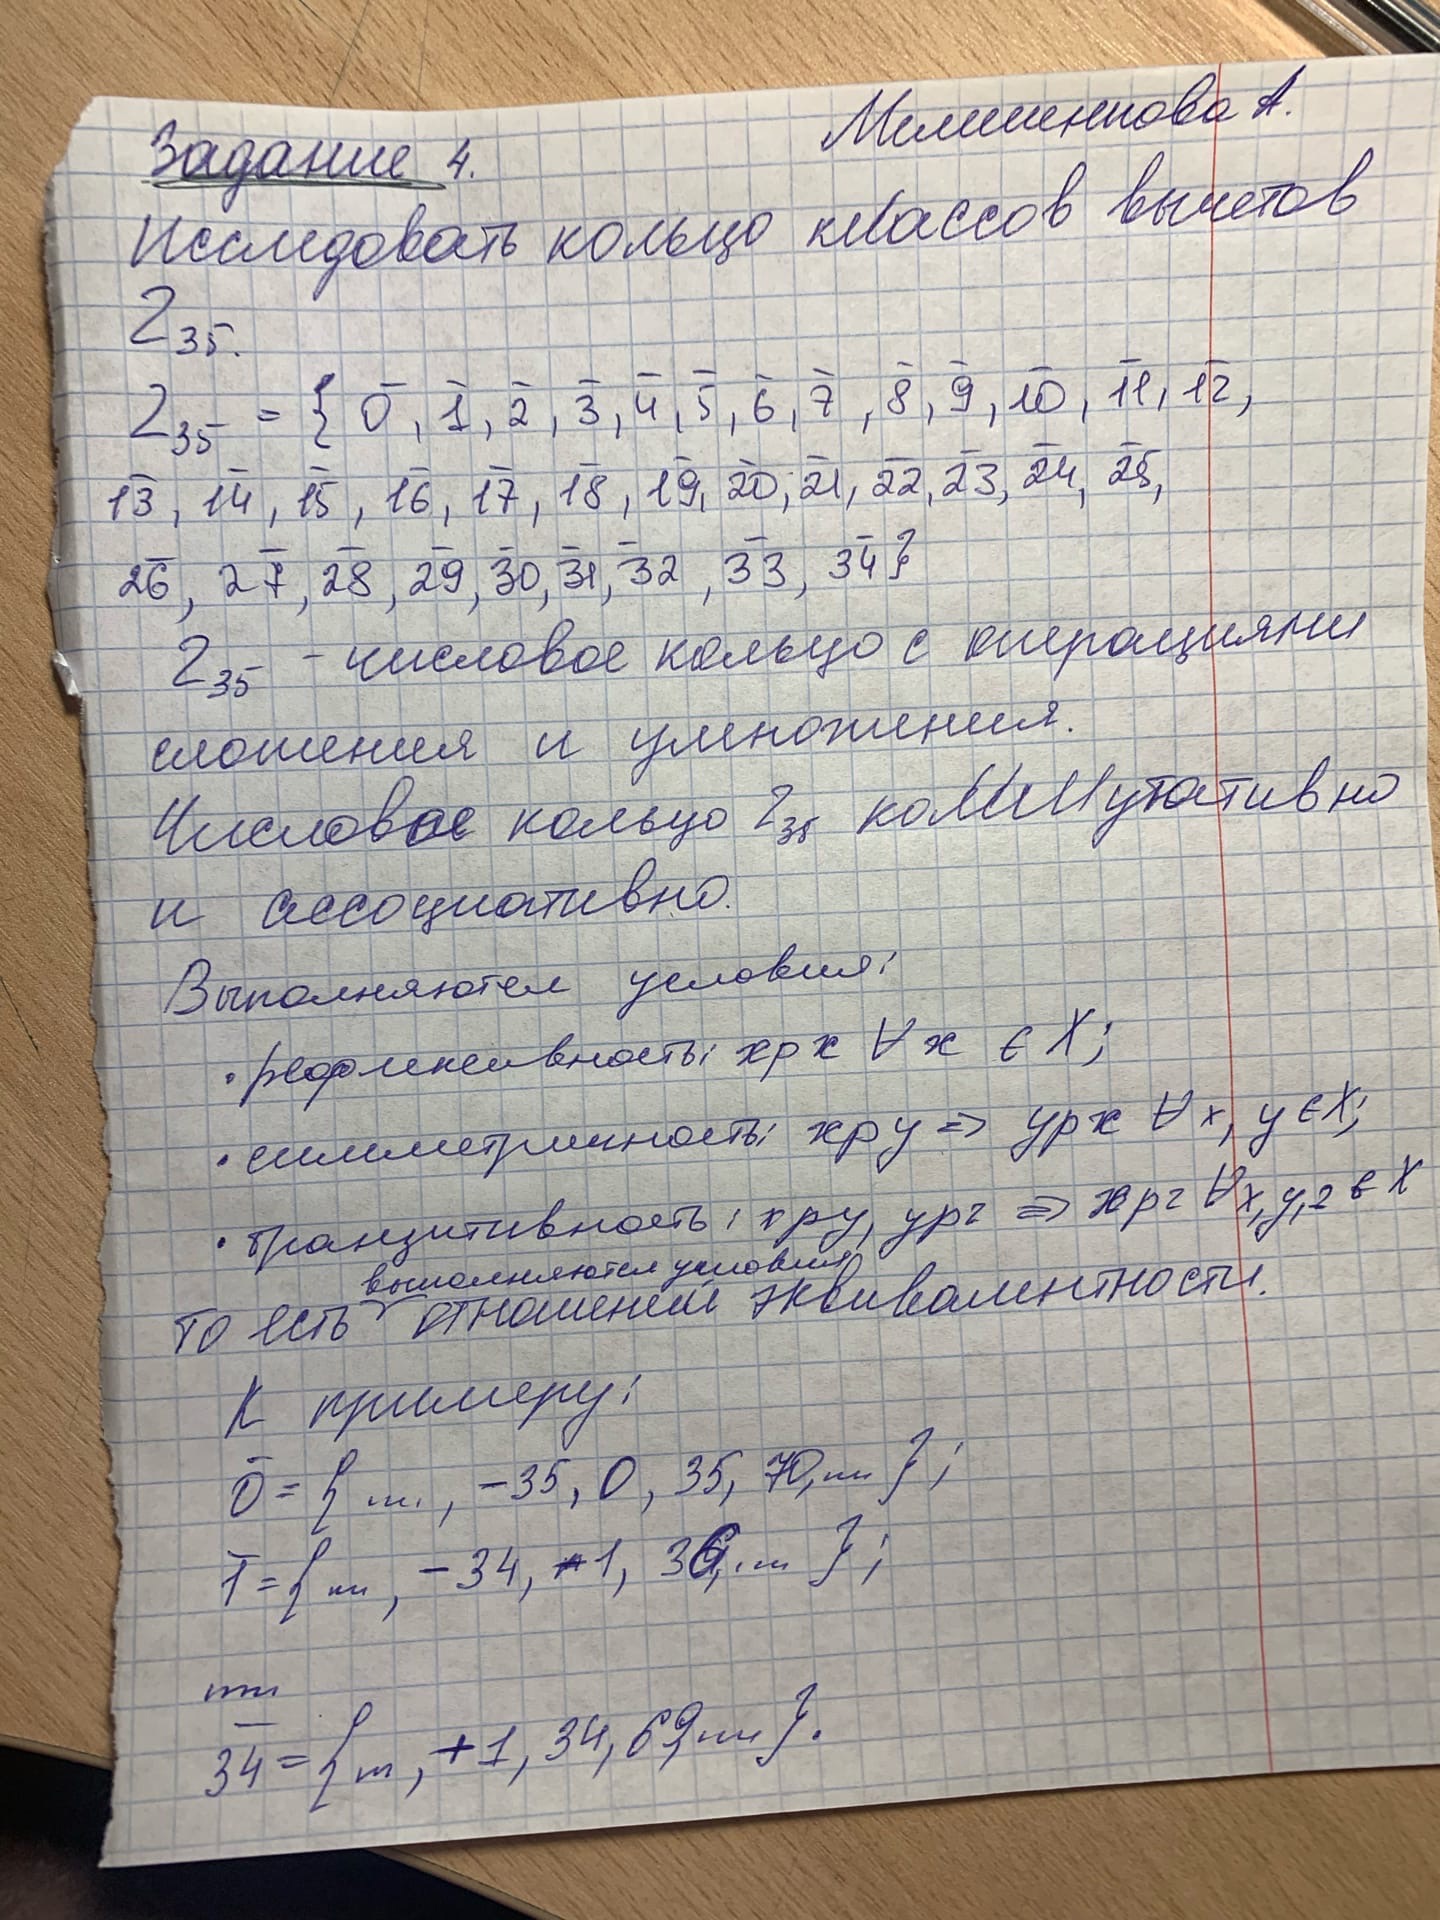 Мелишенкова А.
Задание 4.
Исследовать кольцо классов вычетов
Z₃₅.
Z₃₅ = { 0̄, 1̄, 2̄, 3̄, 4̄, 5̄, 6̄, 7̄, 8̄, 9̄, 1̄0̄, 1̄1̄, 1̄2̄,
1̄3̄, 1̄4̄, 1̄5̄, 1̄6̄, 1̄7̄, 1̄8̄, 1̄9̄, 2̄0̄, 2̄1̄, 2̄2̄, 2̄3̄, 2̄4̄, 2̄5̄,
2̄6̄, 2̄7̄, 2̄8̄, 2̄9̄, 3̄0̄, 3̄1̄, 3̄2̄, 3̄3̄, 3̄4̄}
Z₃₅ - числовое кольцо с операциями
сложения и умножения.
Числовое кольцо Z₃₅ коммутативно
и ассоциативно.
Выполняются условия:
• рефлексивность: xρx ∀ x ∈ X;
• симметричность: xρy ⇒ yρx ∀ x, y ∈ X;
• транзитивность: xρy, yρz ⇒ xρz ∀ x, y, z ∈ X
выполняются условия
То есть отношений эквивалентности.
К примеру:
0̄ = {..., -35, 0, 35, 70, ...};
1̄ = {..., -34, 1, 36, ...};
...
3̄4̄ = {..., +1, 34, 69, ...}.